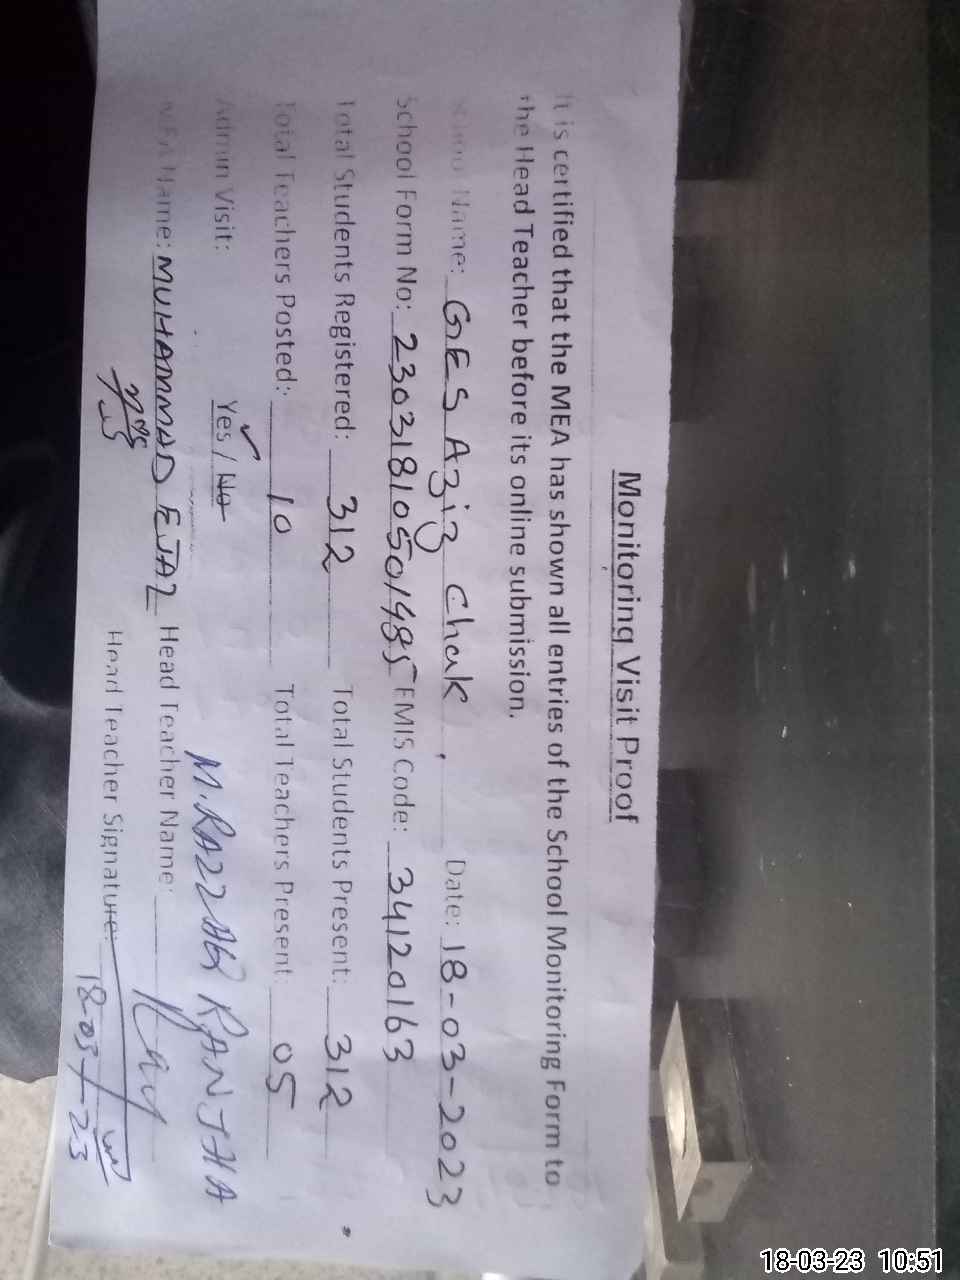 Monitoring Visit Proof
It is certified that the MEA has shown all entries of the School Monitoring Form to
the Head Teacher before its online submission.
School Name: GES Aziz Chak Date: 18-03-2023
School Form No: 23031810501485 EMIS Code: 34120163
Total Students Registered: 312 Total Students Present: 312
Total Teachers Posted: 10 Total Teachers Present: 05
Admin Visit: Yes / No
M. RAZZAQ RANJHA
MEA Name: MUHAMMAD EJAZ Head Teacher Name:
Head Teacher Signature:
18-03-23
18-03-23 10:51